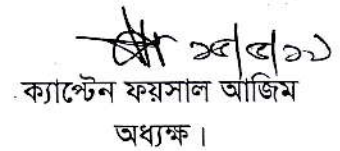 ২৫/৫/২১
ক্যাপ্টেন ফয়সাল আজিম
অধ্যক্ষ।